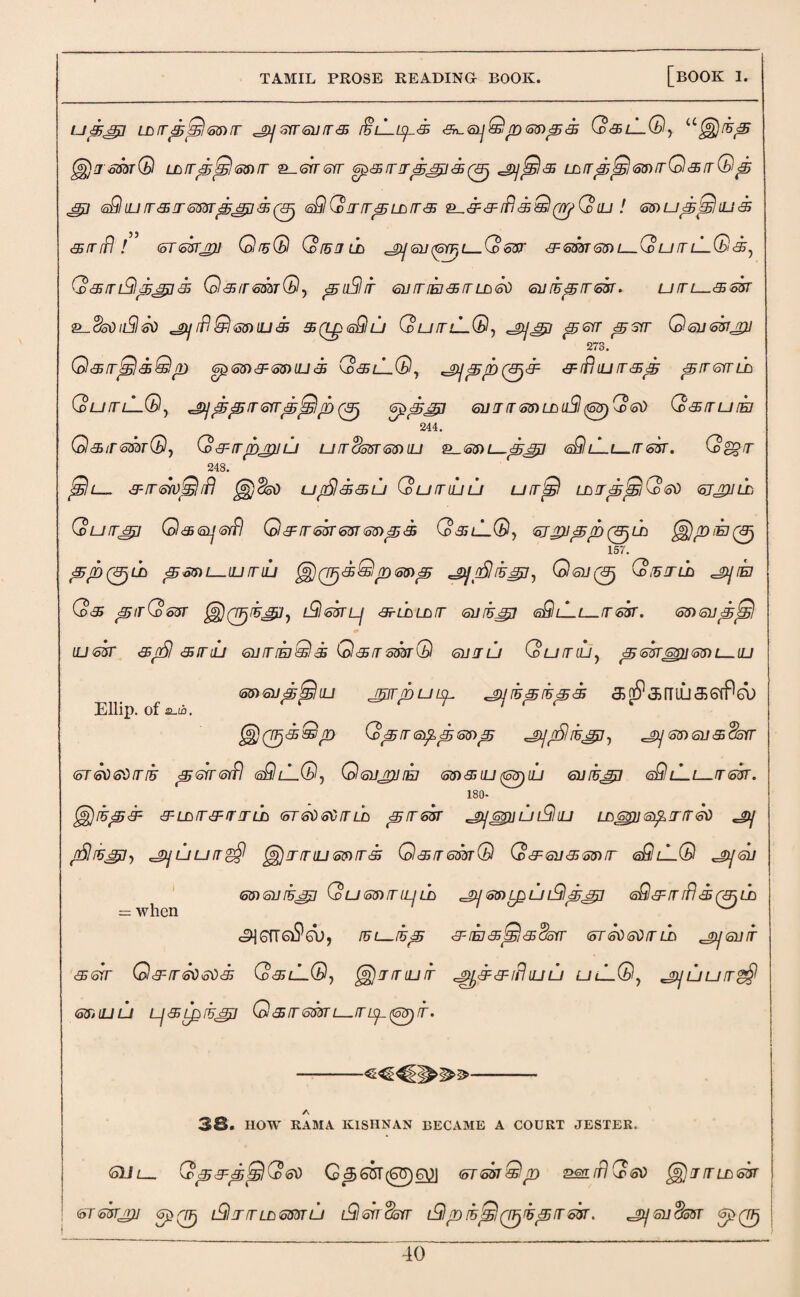 TAMIL PROSE READING BOOK. [BOOK 1.
பத்து மாத்திரை அளவாக நீட்டிக் கூவுகிறதைக் கேட்டு, “இந்த
இரண்டு மாத்திரை உள்ள ஒகாரத்துக்கு அதிக மாத்திரைகொடுத்
து வியாகரணத்துக்கு விரோதமாக உச்சரிக்கிறாயே! பைத்தியக்
காரி!” என்று நெடு நேரம் அவளுடனே சண்டைபோட்டுக்,
கோபித்துக் கொண்டு, தயிர் வாங்காமல் வந்தான். பாடகன்
உலையில் அரிசியைக் கழுவிப் போட்டு, அது தள தள வென்று
273.
கொதிக்கிற ஒசையைக் கேட்டு, அதற்குச் சரியாகத் தாளம்
போட்டு, அத்தாளத்திற்கு ஒத்து வாராமையினாலே கோபங்
244.
கொண்டு, சோற்றுப் பானையை உடைத்து விட்டான். சோதி
248.
டன் சாஸ்திரி இலை பறிக்கப் போய்ப் பாதி மரத்திலே ஏறும்
போது கெவுளி சொன்னதைக் கேட்டு, ஏறுதற்கும் இறங்கு
157.
தற்கும் தடையாய் இருக்கிறதை அறிந்து, வெகு நேரம் அங்
கே தானே இருந்து, பின்பு சும்மா வந்து விட்டான். வைத்தி
யன் கறி காய் வாங்கிக் கொண்டு வரப் போய், தன்னுடைய
வைத்திய நூற்படி அந்தந்தக் கறிகாய்களில்
Ellip. of உம்.
இருக்கிற தோஷத்தை அறிந்து, அவைகளை
எல்லாந் தள்ளி விட்டு, வெறுங் கையனாய் வந்து விட்டான்.
180.
இந்தச் சமாசாரம் எல்லாம் தான் அனுப்பிய மனுஷரால் அ
றிந்து, அப்பாஜி இராயனாக கொண்டு சேவகனா விட்டு அவ
வைந்து பேரையும் அழைப்பித்து விசாரிக்கும்
= when
அளவில், நடந்த சங்கதிகளை எல்லாம் அவர்
கள் சொல்லக் கேட்டு, இராயர் ஆச்சரியப் பட்டு, அப்பாஜி
யைப் புகழ்ந்து கொண்டாடினார்.
38. HOW RAMA KISHNAN BECAME A COURT JESTER.
வட தேசத்திலே தென்னாலு என்கிற ஊரிலே இராமன்
என்று ஒரு பிராமணப் பிள்ளை பிறந்திருந்தான். அவனை ஒரு
40